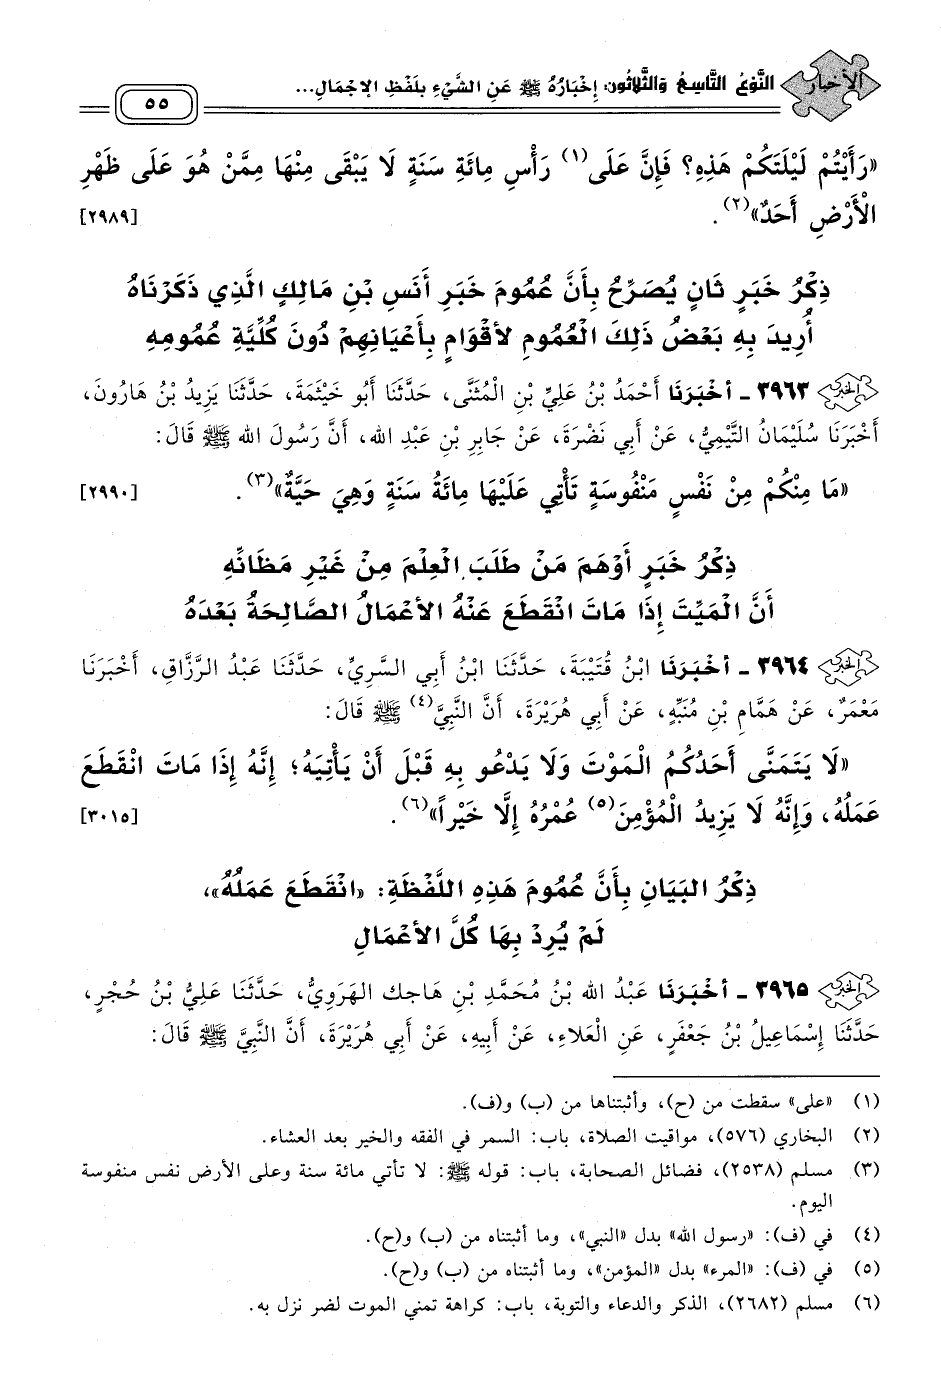 الأخبار
النَّوْعُ التَّاسِعُ وَالثَّلاثُون: إِخْبَارُهُ ﷺ عَنِ الشَّيْءِ بِلَفْظِ الإجْمَالِ...
٥٥
«رَأَيْتُمْ لَيْلَتَكُمْ هَذِهِ؟ فَإِنَّ عَلَى(١) رَأْسِ مِائَةِ سَنَةٍ لَا يَبْقَى مِنْهَا مِمَّنْ هُوَ عَلَى ظَهْرِ
الْأَرْضِ أَحَدٌ»(٢). [٢٩٨٩]
ذِكْرُ خَبَرٍ ثَانٍ يُصَرِّحُ بِأَنَّ عُمُومَ خَبَرِ أَنَسِ بْنِ مَالِكٍ الَّذِي ذَكَرْنَاهُ
أُرِيدَ بِهِ بَعْضُ ذَلِكَ الْعُمُومِ لأقْوَامٍ بِأَعْيَانِهِمْ دُونَ كُلِّيَّةِ عُمُومِهِ
الخبر ٣٩٦٣ - أخْبَرَنَا أَحْمَدُ بْنُ عَلِيِّ بْنِ الْمُثَنَّى، حَدَّثَنَا أَبُو خَيْثَمَةَ، حَدَّثَنَا يَزِيدُ بْنُ هَارُونَ،
أَخْبَرَنَا سُلَيْمَانُ التَّيْمِيُّ، عَنْ أَبِي نَضْرَةَ، عَنْ جَابِرِ بْنِ عَبْدِ الله، أَنَّ رَسُولَ الله ﷺ قَالَ:
«مَا مِنْكُمْ مِنْ نَفْسٍ مَنْفُوسَةٍ تَأْتِي عَلَيْهَا مِائَةُ سَنَةٍ وَهِيَ حَيَّةٌ»(٣). [٢٩٩٠]
ذِكْرُ خَبَرٍ أَوْهَمَ مَنْ طَلَبَ الْعِلْمَ مِنْ غَيْرِ مَظَانِّهِ
أَنَّ الْمَيِّتَ إِذَا مَاتَ انْقَطَعَ عَنْهُ الأعْمَالُ الصَّالِحَةُ بَعْدَهُ
الخبر ٣٩٦٤ - أخْبَرَنَا ابْنُ قُتَيْبَةَ، حَدَّثَنَا ابْنُ أَبِي السَّرِيِّ، حَدَّثَنَا عَبْدُ الرَّزَّاقِ، أَخْبَرَنَا
مَعْمَرٌ، عَنْ هَمَّامِ بْنِ مُنَبِّهٍ، عَنْ أَبِي هُرَيْرَةَ، أَنَّ النَّبِيَّ(٤) ﷺ قَالَ:
«لَا يَتَمَنَّى أَحَدُكُمُ الْمَوْتَ وَلَا يَدْعُو بِهِ قَبْلَ أَنْ يَأْتِيَهُ؛ إِنَّهُ إِذَا مَاتَ انْقَطَعَ
عَمَلُهُ، وَإِنَّهُ لَا يَزِيدُ الْمُؤْمِنَ(٥) عُمْرُهُ إِلَّا خَيْراً»(٦). [٣٠١٥]
ذِكْرُ البَيَانِ بِأَنَّ عُمُومَ هَذِهِ اللَّفْظَةِ: «انْقَطَعَ عَمَلُهُ»،
لَمْ يُرِدْ بِهَا كُلَّ الأعْمَالِ
الخبر ٣٩٦٥ - أخْبَرَنَا عَبْدُ الله بْنُ مُحَمَّدِ بْنِ هَاجك الهَرَوِيُّ، حَدَّثَنَا عَلِيُّ بْنُ حُجْرٍ،
حَدَّثَنَا إِسْمَاعِيلُ بْنُ جَعْفَرٍ، عَنِ الْعَلاءِ، عَنْ أَبِيهِ، عَنْ أَبِي هُرَيْرَةَ، أَنَّ النَّبِيَّ ﷺ قَالَ:
(١) «على» سقطت من (ح)، وأثبتناها من (ب) و(ف).
(٢) البخاري (٥٧٦)، مواقيت الصلاة، باب: السمر في الفقه والخير بعد العشاء.
(٣) مسلم (٢٥٣٨)، فضائل الصحابة، باب: قوله ﷺ: لا تأتي مائة سنة وعلى الأرض نفس منفوسة
اليوم.
(٤) في (ف): «رسول الله» بدل «النبي»، وما أثبتناه من (ب) و(ح).
(٥) في (ف): «المرء» بدل «المؤمن»، وما أثبتناه من (ب) و(ح).
(٦) مسلم (٢٦٨٢)، الذكر والدعاء والتوبة، باب: كراهة تمني الموت لضر نزل به.